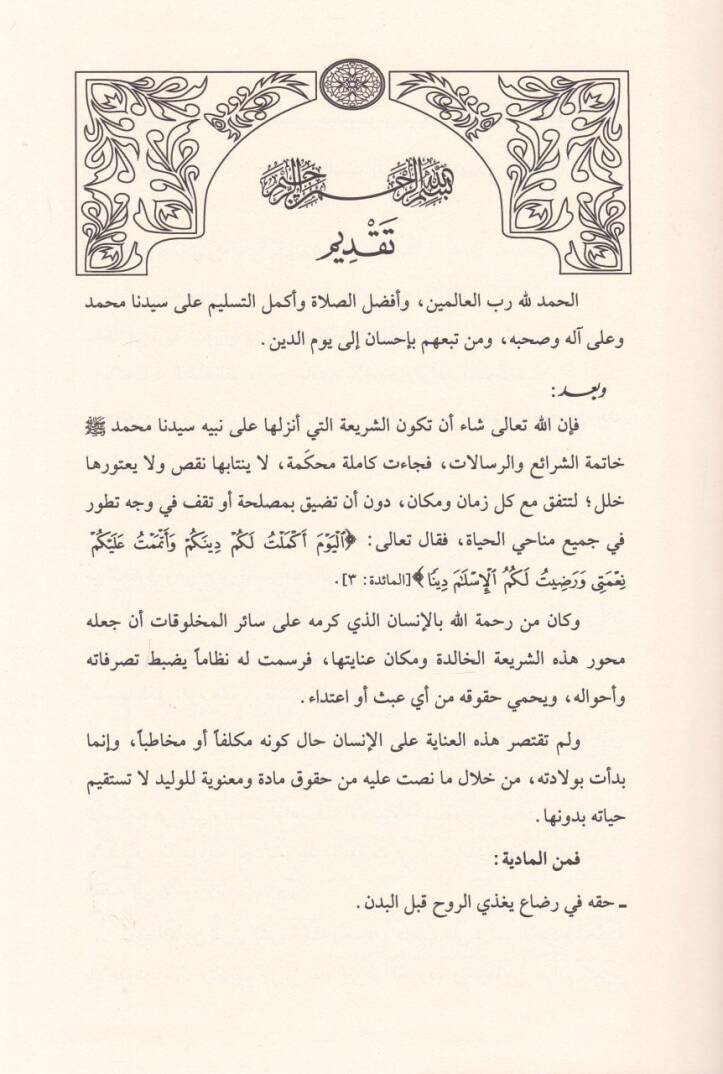 بسم الله الرحمن الرحيم
تَقْدِيم
الحمد لله رب العالمين، وأفضل الصلاة وأكمل التسليم على سيدنا محمد
وعلى آله وصحبه، ومن تبعهم بإحسان إلى يوم الدين.
وبعد:
فإن الله تعالى شاء أن تكون الشريعة التي أنزلها على نبيه سيدنا محمد ﷺ
خاتمة الشرائع والرسالات، فجاءت كاملة محكَمة، لا ينتابها نقص ولا يعتورها
خلل؛ لتتفق مع كل زمان ومكان، دون أن تضيق بمصلحة أو تقف في وجه تطور
في جميع مناحي الحياة، فقال تعالى: ﴿ٱلۡيَوۡمَ أَكۡمَلۡتُ لَكُمۡ دِينَكُمۡ وَأَتۡمَمۡتُ عَلَيۡكُمۡ
نِعۡمَتِي وَرَضِيتُ لَكُمُ ٱلۡإِسۡلَٰمَ دِينٗا﴾ [المائدة: ٣].
وكان من رحمة الله بالإنسان الذي كرمه على سائر المخلوقات أن جعله
محور هذه الشريعة الخالدة ومكان عنايتها، فرسمت له نظاماً يضبط تصرفاته
وأحواله، ويحمي حقوقه من أي عبث أو اعتداء.
ولم تقتصر هذه العناية على الإنسان حال كونه مكلفاً أو مخاطباً، وإنما
بدأت بولادته، من خلال ما نصت عليه من حقوق مادة ومعنوية للوليد لا تستقيم
حياته بدونها.
فمن المادية:
ـ حقه في رضاع يغذي الروح قبل البدن.